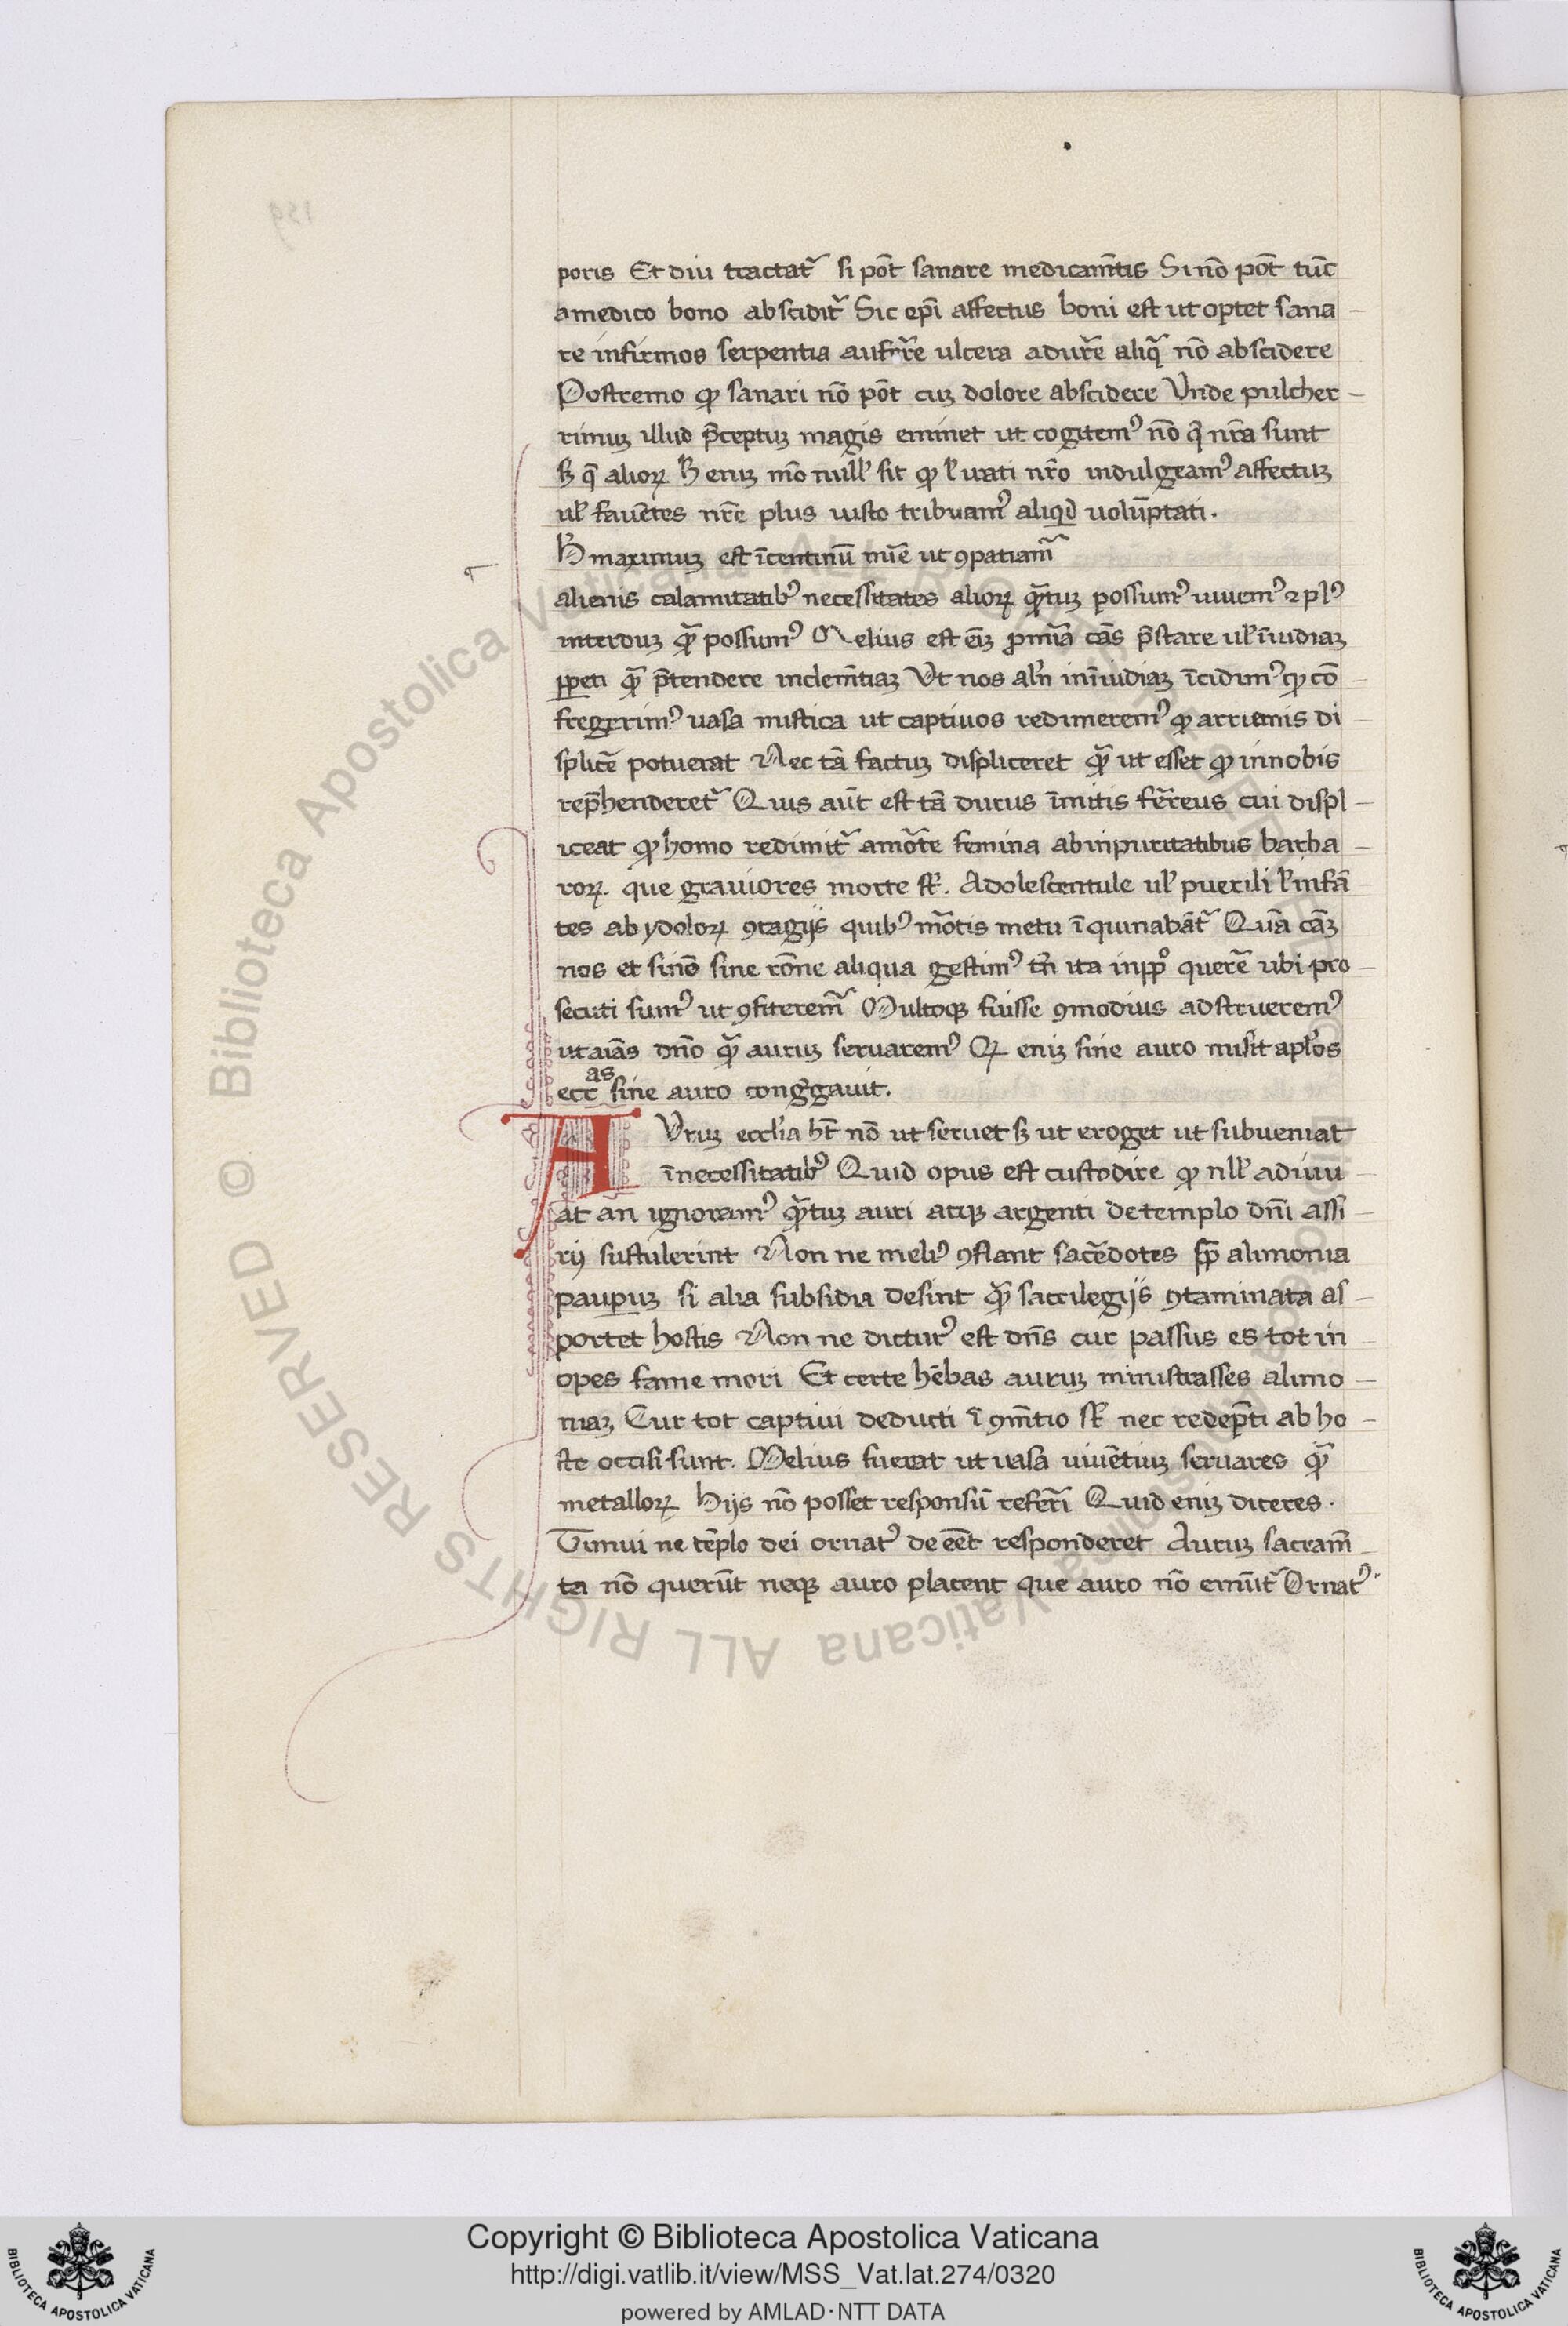 poris Et diu tractat᷑ si pōt sanare medicam̄tis Si nō pōt tūc
a medico bono abscidit᷑ Sic ep̄i affectus boni est ut optet sana
re infirmos serpentia aufer̄re ulcera adur̄e aliqᷓ nō abscidere
Postremo ꝙ sanari nō pōt cuꝫ dolore abscidere Vnde pulcher
rimuꝫ illud p̄ceptuꝫ magis eminet ut cogitemꝰ nō q̄ nr̄a sunt
sꝫ q̄ alioꝝ. H̄ enиꝫ mō null̓ sit ꝙ l̓ irati nr̄o indulgeamꝰ affectuꝫ
ul̓ favētes nr̄e plus iusto tribuamꝰ aliqd̄ uolūptati.
H̄ maximuꝫ est īcentiuū mīe ut ꝯpatiam᷑
alienis calamitatibꝰ necessitates alioꝝ qᷓtuꝫ possumꝰ iuuemꝰ ⁊ plꝰ
interduꝫ qᷓ possumꝰ Melius est eīꝫ ꝓ mīa cās p̄stare ul̓ īuidiaꝫ
ꝑpeti qᷓ p̄tendere inclem̄tiaꝫ Vt nos aln̄ in īuidiaꝫ īcidimꝰ ꝙ cō
fregerimꝰ uasa mistica ut captiuos redimeremꝰ ꝙ arrianis di
splicē potuerat Nec tā factuꝫ displiceret qᷓ ut esset ꝙ in nobis
rep̄henderet᷑ Quis aūt est tā durus īmitis fer̄reus cui displ
iceat ꝙ homo redimit᷑ a mōte femina ab inpuritatibus barba
roꝝ que grauiores morte st̄. Adolescentule ul̓ puerili l̓ infā
tes ab ydoloꝝ ꝯtagijs quibꝰ mōtis metu īquinabāt᷑ Quā cāꝫ
nos et si nō sine rōne aliqua gestimꝰ tn̄ ita in pp̄o querē ubi pro
secuti sumꝰ ut ꝯfiterem᷑ Multoqꝫ fuisse ꝯmodius adstrueremꝰ
ut aīas dn̄o qᷓ auruꝫ seruaremꝰ Qꝝ eniꝫ sine auro misit apl̓os
ecc̄as sine auro cong̓gauit.
AVruꝫ eccl̓ia ht̄ nō ut seruet sꝫ ut eroget ut subueniat
ī necessitatibꝰ Quid opus est custodire ꝙ nll̓ adiuu
at an ignoramꝰ qᷓtuꝫ auri atqꝫ argenti de templo dn̄i assi
rij sustulerint Non ne meliꝰ ꝯflant sac̄dotes ꝓp̄ alimonia
paupuꝫ si alia subsidia desint qᷓ sacrilegijs ꝯtaminata as
portet hostis Non ne dicturꝰ est dn̄s cur passus es tot in
opes fame mori Et certe hēbas auruꝫ ministrasses alimo
niaꝫ Cur tot captiui deducti ī ꝯm̄tio st̄ nec redep̄ti ab ho
ste occisi sunt. Melius fuerat ut uasa uiuētiuꝫ seruares qᷓ
metalloꝝ Hijs nō posset responsū refer̄i Quid eniꝫ diceres.
Timui ne tēplo dei ornatꝰ deēēt responderet Auruꝫ sacram̄
ta nō querūt neqꝫ auro placent que auro nō emūt᷑ Ornatꝰ
© Biblioteca Apostolica Vaticana ALL RIGHTS RESERVED
Copyright © Biblioteca Apostolica Vaticana
http://digi.vatlib.it/view/MSS_Vat.lat.274/0320
powered by AMLAD·NTT DATA
BIBLIOTECA APOSTOLICA VATICANA
BIBLIOTECA APOSTOLICA VATICANA